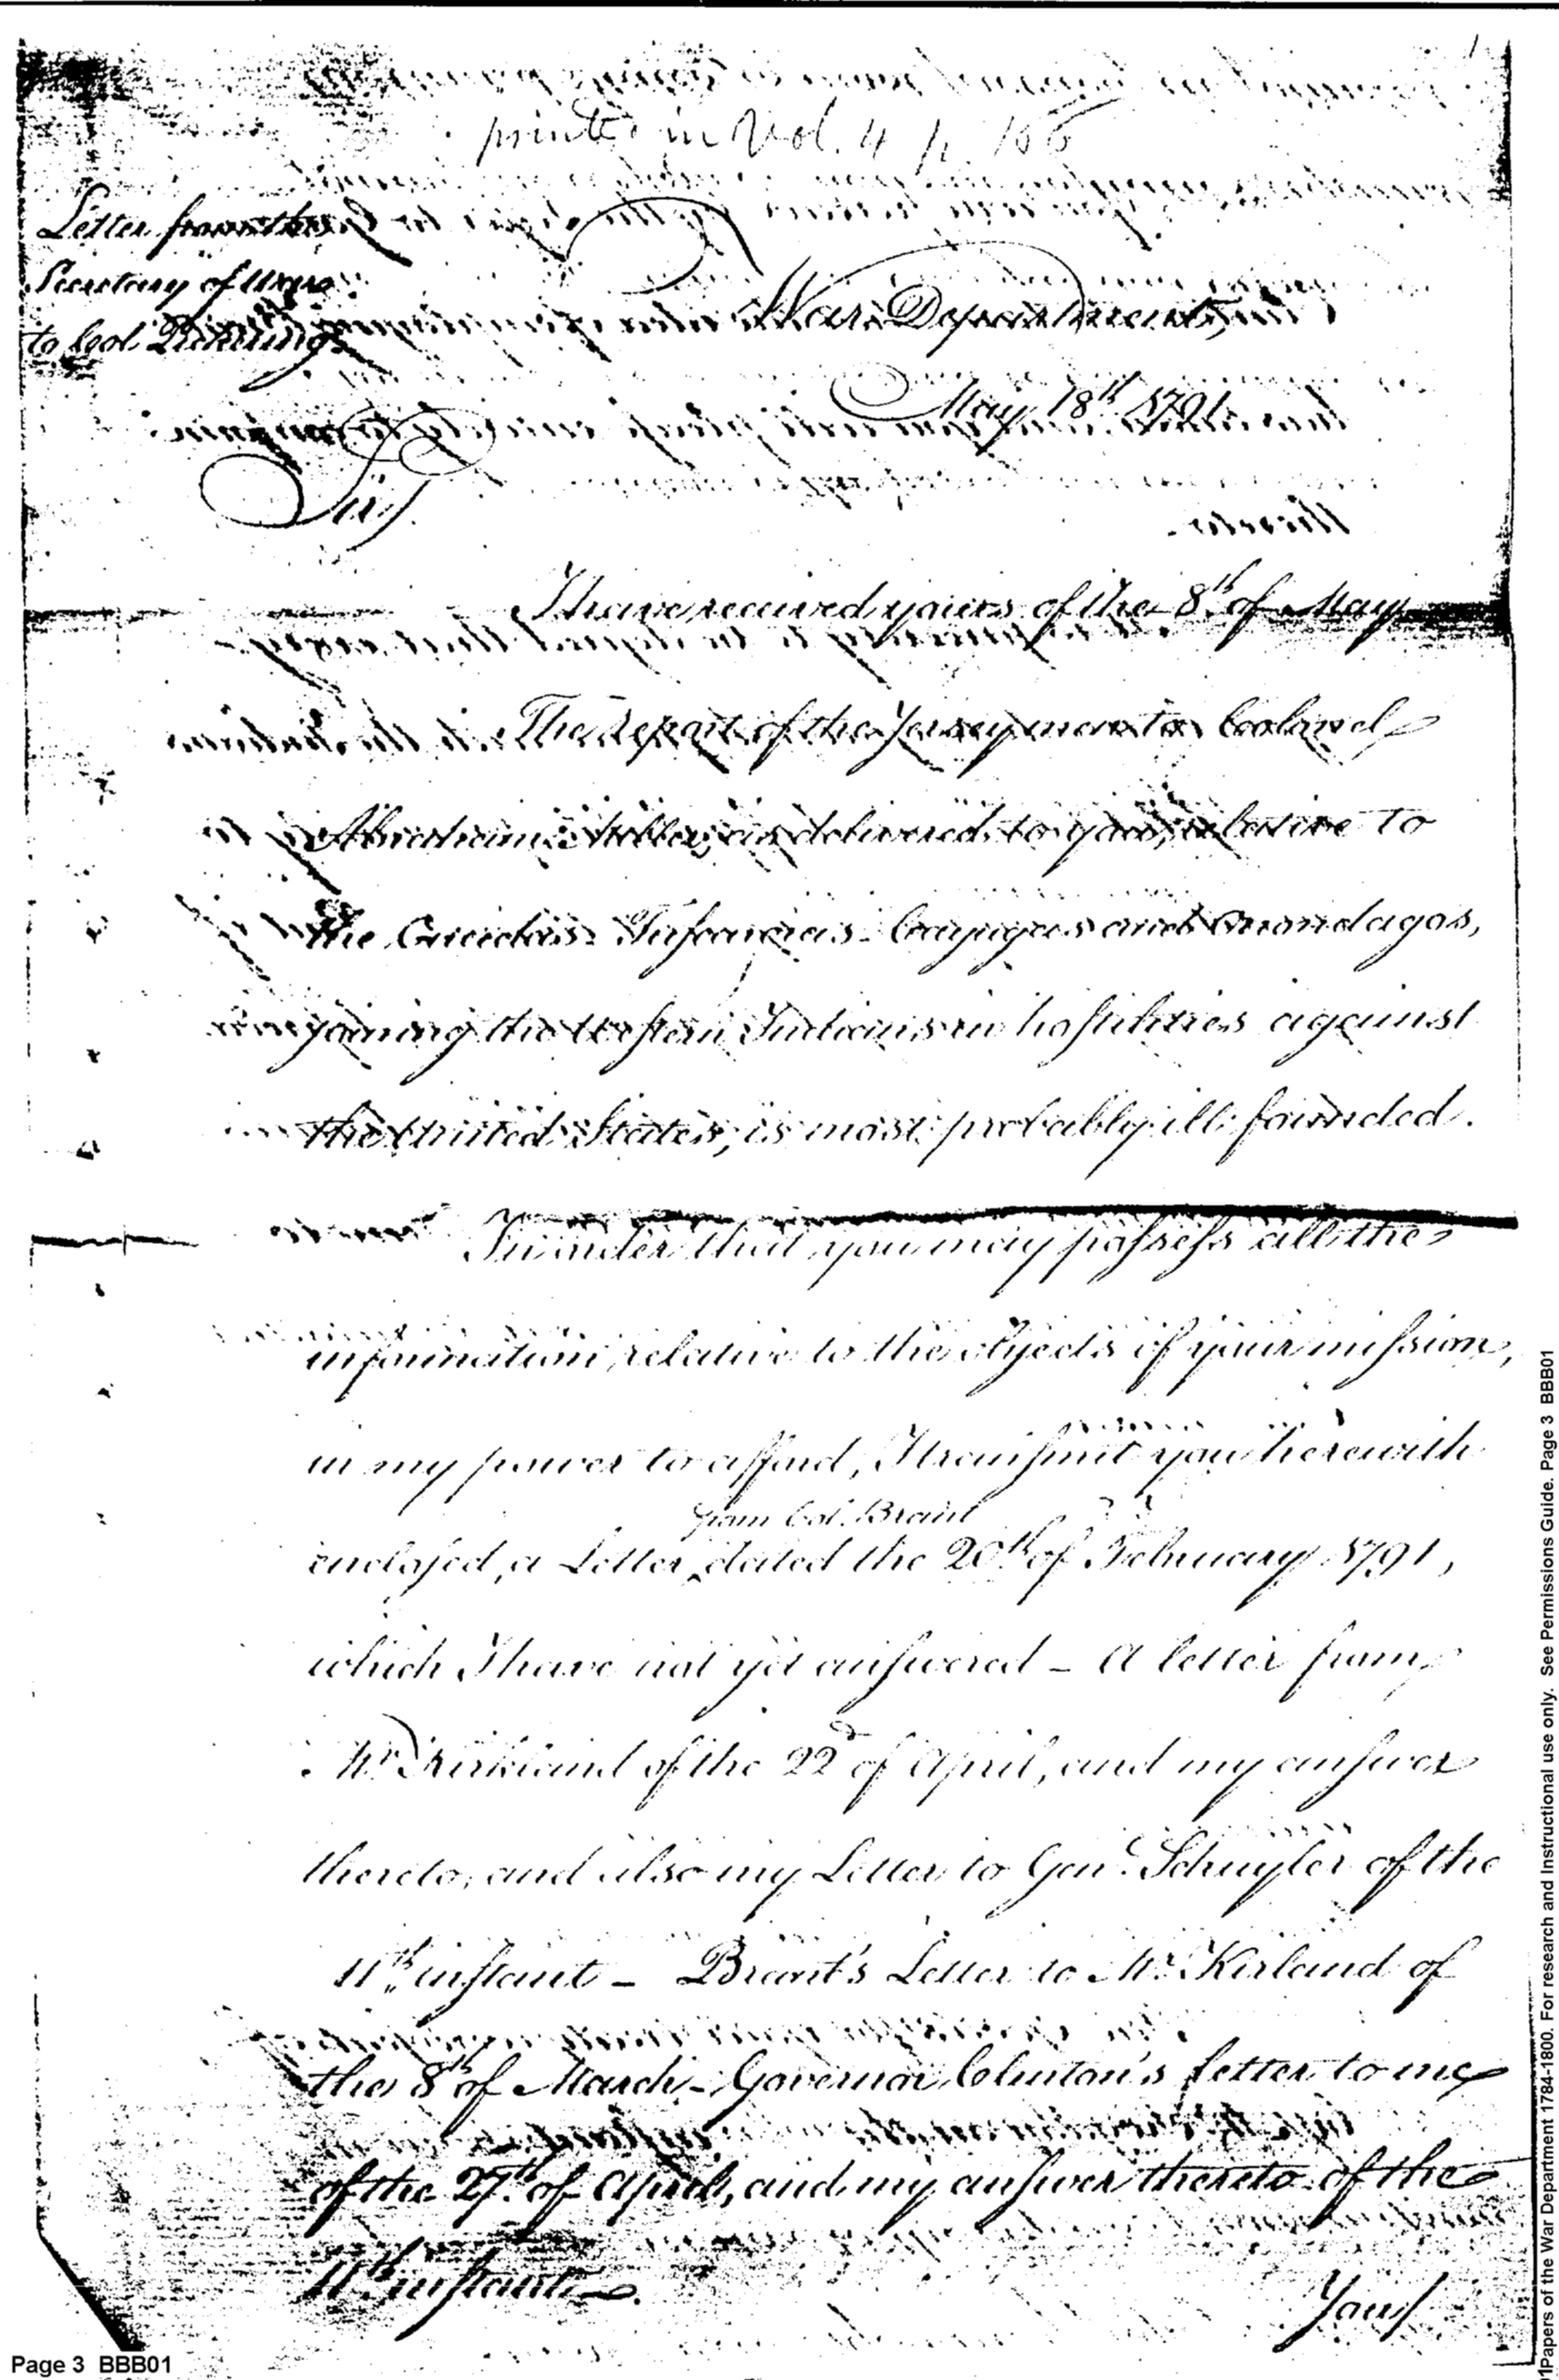 printed in Vol. 4 p. 166
Letter from the
Secretary of War
to Col. Pickering
War Department,
May 18th 1791
Sir,
I have received yours of the 8th of May
The report of the Jerseyman to Colonel
Abraham delivered to you, relative to
the Oneidas Tuscaroras Cayugas and Onondagas,
joining the Western Indians in hostilities against
the United States, is most probably ill founded.
In order that you may possess all the
information relative to the objects of your mission,
in my power to afford, I transmit you herewith
from Col. Brant
enclosed, a Letter ‸ dated the 20th of February 1791,
which I have not yet answered – A letter from
Mr. Kirkland of the 22d of April, and my answer
thereto, and also my Letter to Genl. Schuyler of the
11th instant – Brant's Letter to Mr. Kirland of
the 8th of March – Governor Clinton's letter to me
of the 27th of April, and my answer thereto of the
11th instant –
You
Page 3 BBB01
Papers of the War Department 1784-1800. For research and Instructional use only. See Permissions Guide. Page 3 BBB01